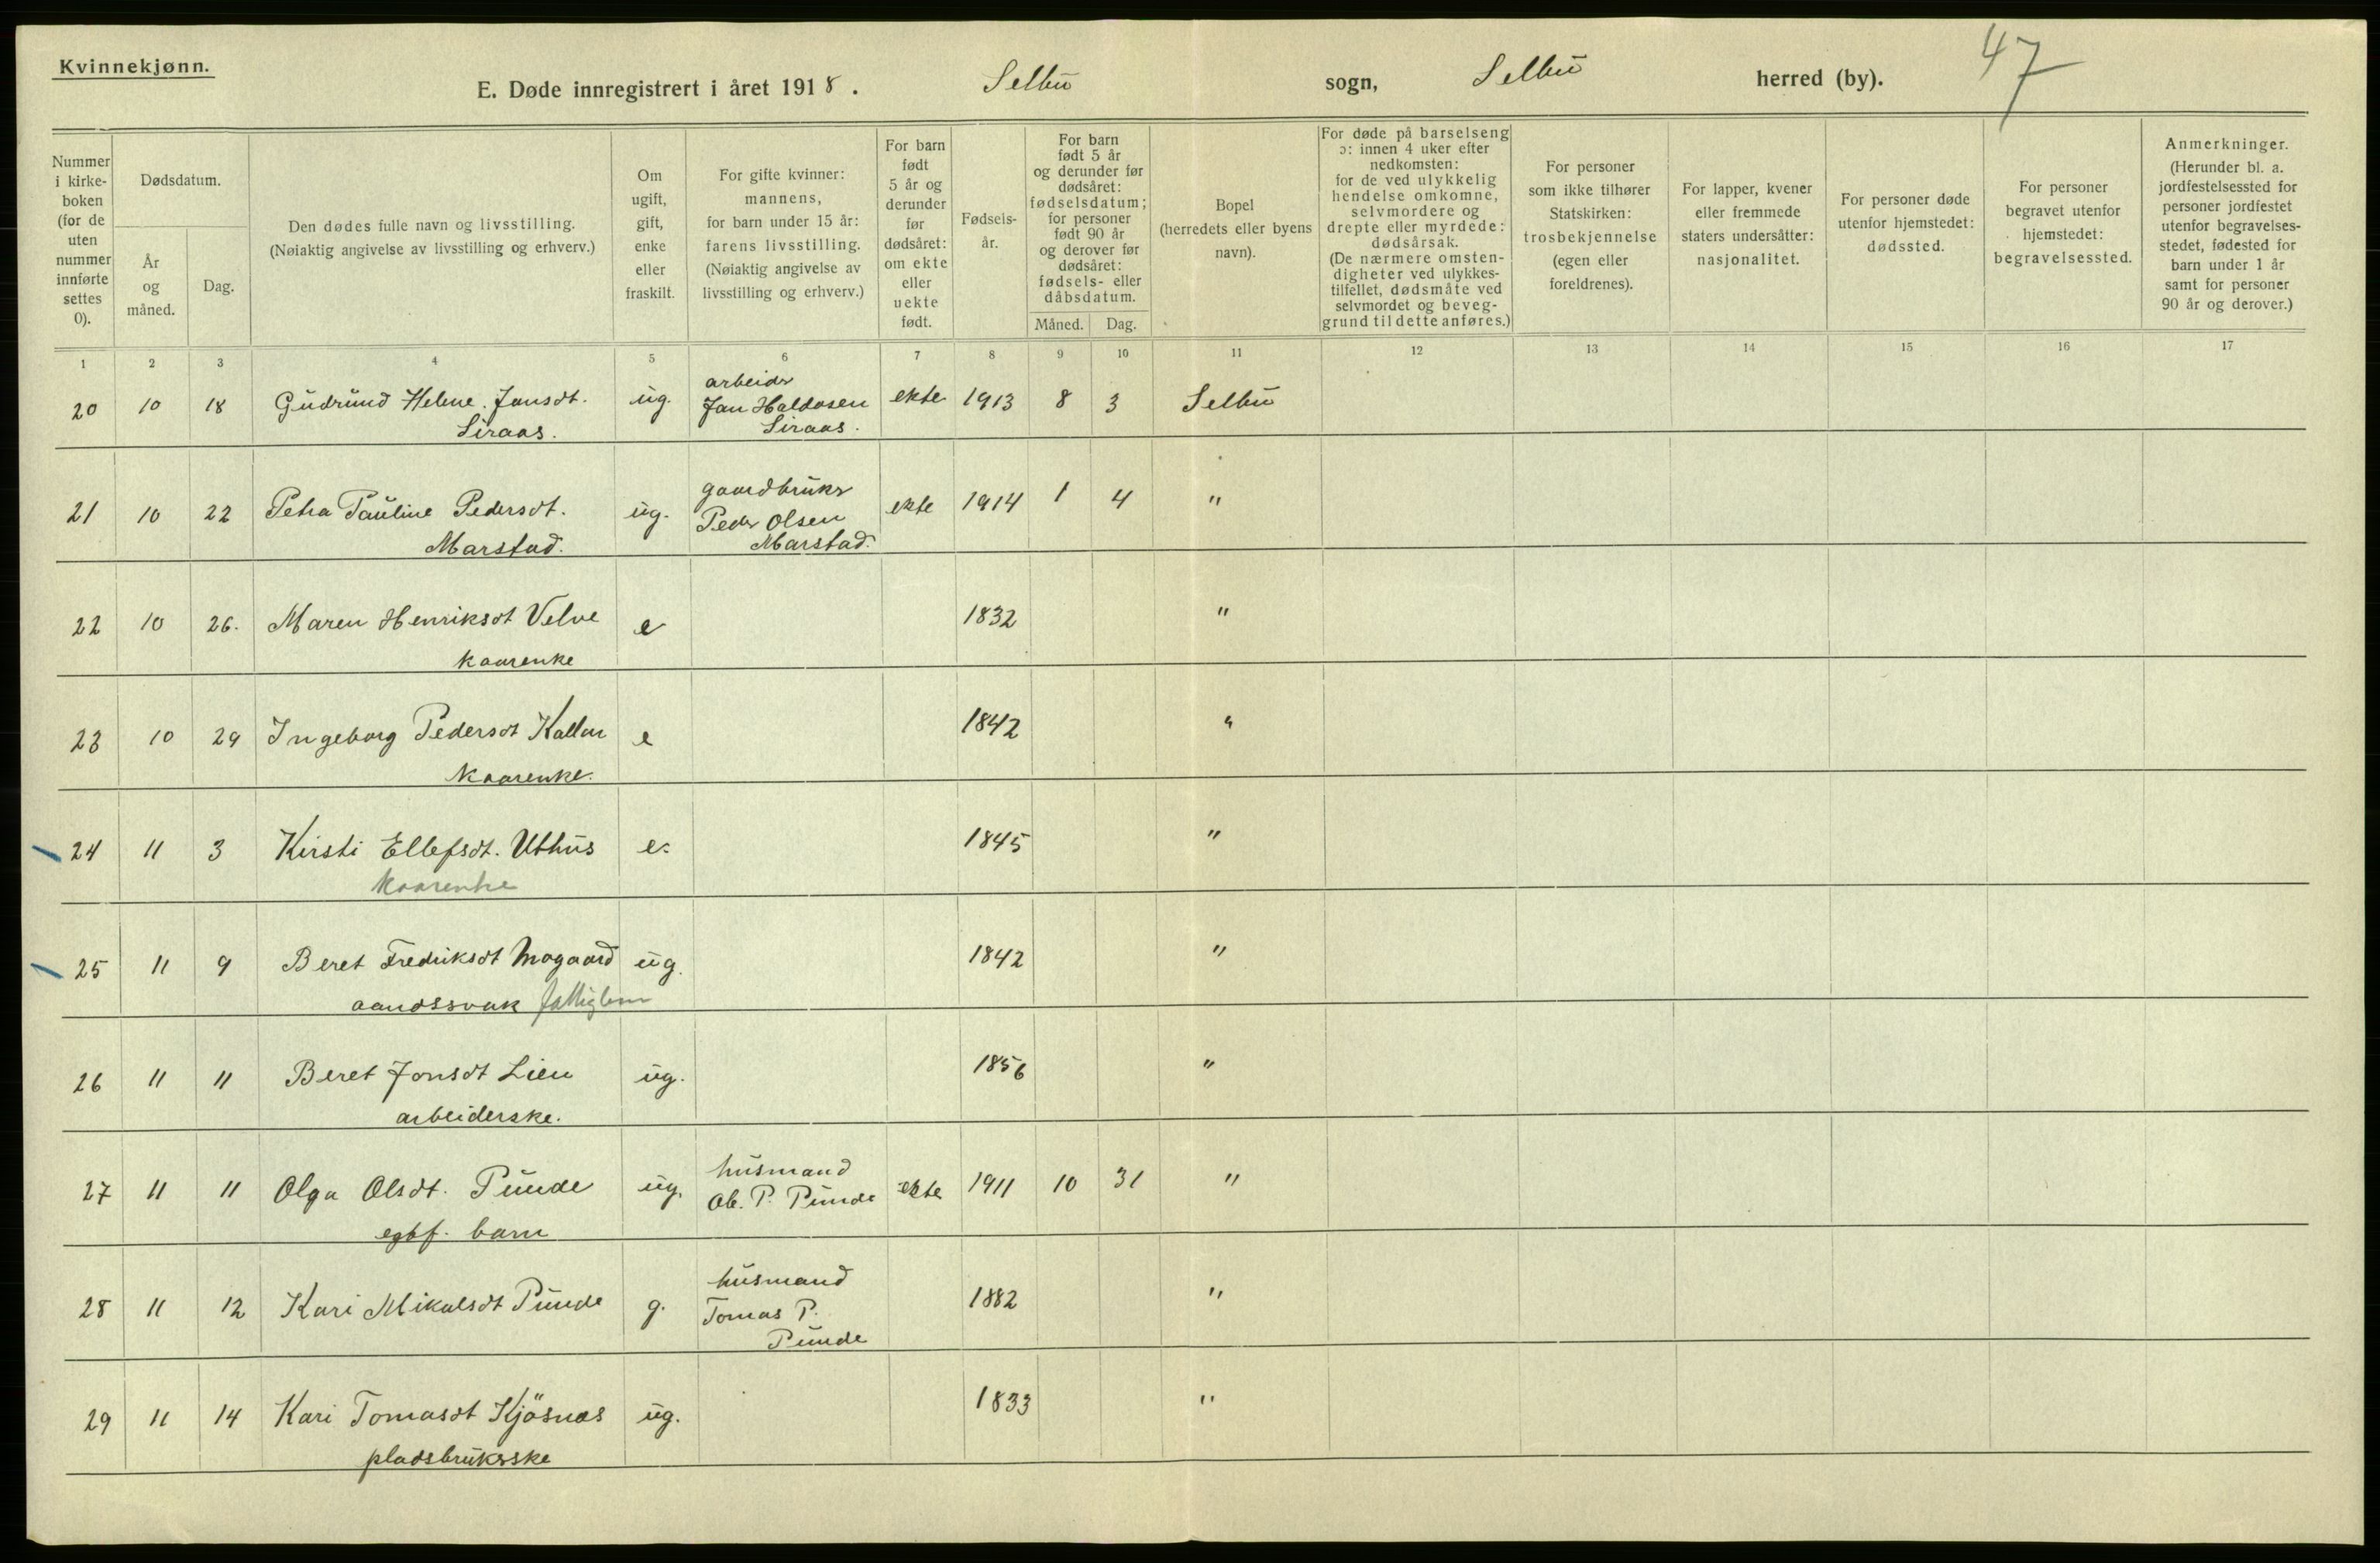 Kvinnekjønn.
E. Døde innregistrert i året 1918. Selbu sogn, Selbu herred (by). 47
Nummer i kirke-boken (for de uten nummer innførte settes 0).
Dødsdatum.
År og måned.
Dag.
Den dødes fulle navn og livsstilling.
(Nøiaktig angivelse av livsstilling og erhverv.)
Om ugift, gift, enke eller fraskilt.
For gifte kvinner: mannens, for barn under 15 år: farens livsstilling. (Nøiaktig angivelse av livsstilling og erhverv.)
For barn født 5 år og derunder før dødsåret: om ekte eller uekte født.
Fødsels-år.
For barn født 5 år og derunder før dødsåret: fødselsdatum; for personer født 90 år og derover før dødsåret: fødsels- eller dåbsdatum.
Måned. Dag.
Bopel (herredets eller byens navn).
For døde på barselseng ɔ: innen 4 uker efter nedkomsten: for de ved ulykkelig hendelse omkomne, selvmordere og drepte eller myrdede: dødsårsak. (De nærmere omsten-digheter ved ulykkes-tilfellet, dødsmåte ved selvmordet og beveg-grund til dette anføres.)
For personer som ikke tilhører Statskirken: trosbekjennelse (egen eller foreldrenes).
For lapper, kvener eller fremmede staters undersåtter: nasjonalitet.
For personer døde utenfor hjemstedet: dødssted.
For personer begravet utenfor hjemstedet: begravelsessted.
Anmerkninger. (Herunder bl. a. jordfestelsessted for personer jordfestet utenfor begravelses-stedet, fødested for barn under 1 år samt for personer 90 år og derover.)
1 2 3 4 5 6 7 8 9 10 11 12 13 14 15 16 17
arbeidr
20 10 18 Gudrund Helene Jonsdt. ug. Jon Haldosen ekte 1913 8 3 Selbu
Siraas. Siraas.
gaardbrukr
21 10 22 Petra Pauline Pedersdt. ug. Peder Olsen ekte 1914 1 4 "
Marstad. Marstad.
22 10 26. Maren Henriksdt Velve e 1832 "
kaarenke
23 10 29 Ingeborg Pedersdt Kallar e 1842 "
kaarenke.
24 11 3 Kirsti Ellefsdt. Uthus e. 1845 "
kaarenke
25 11 9 Beret Fredriksdt Mogaard ug. 1842 "
aandssvak fattiglem
26 11 11 Beret Jonsdt Lien ug. 1856 "
arbeiderske.
husmand
27 11 11 Olga Olsdt. Punde ug. Ol. P. Punde ekte 1911 10 31 "
egtf. barn
husmand
28 11 12 Kari Mikalsdt Punde g. Tomas P. 1882 "
Punde
29 11 14 Kari Tomasdt Kjösnas ug. 1833 "
pladsbrukerske